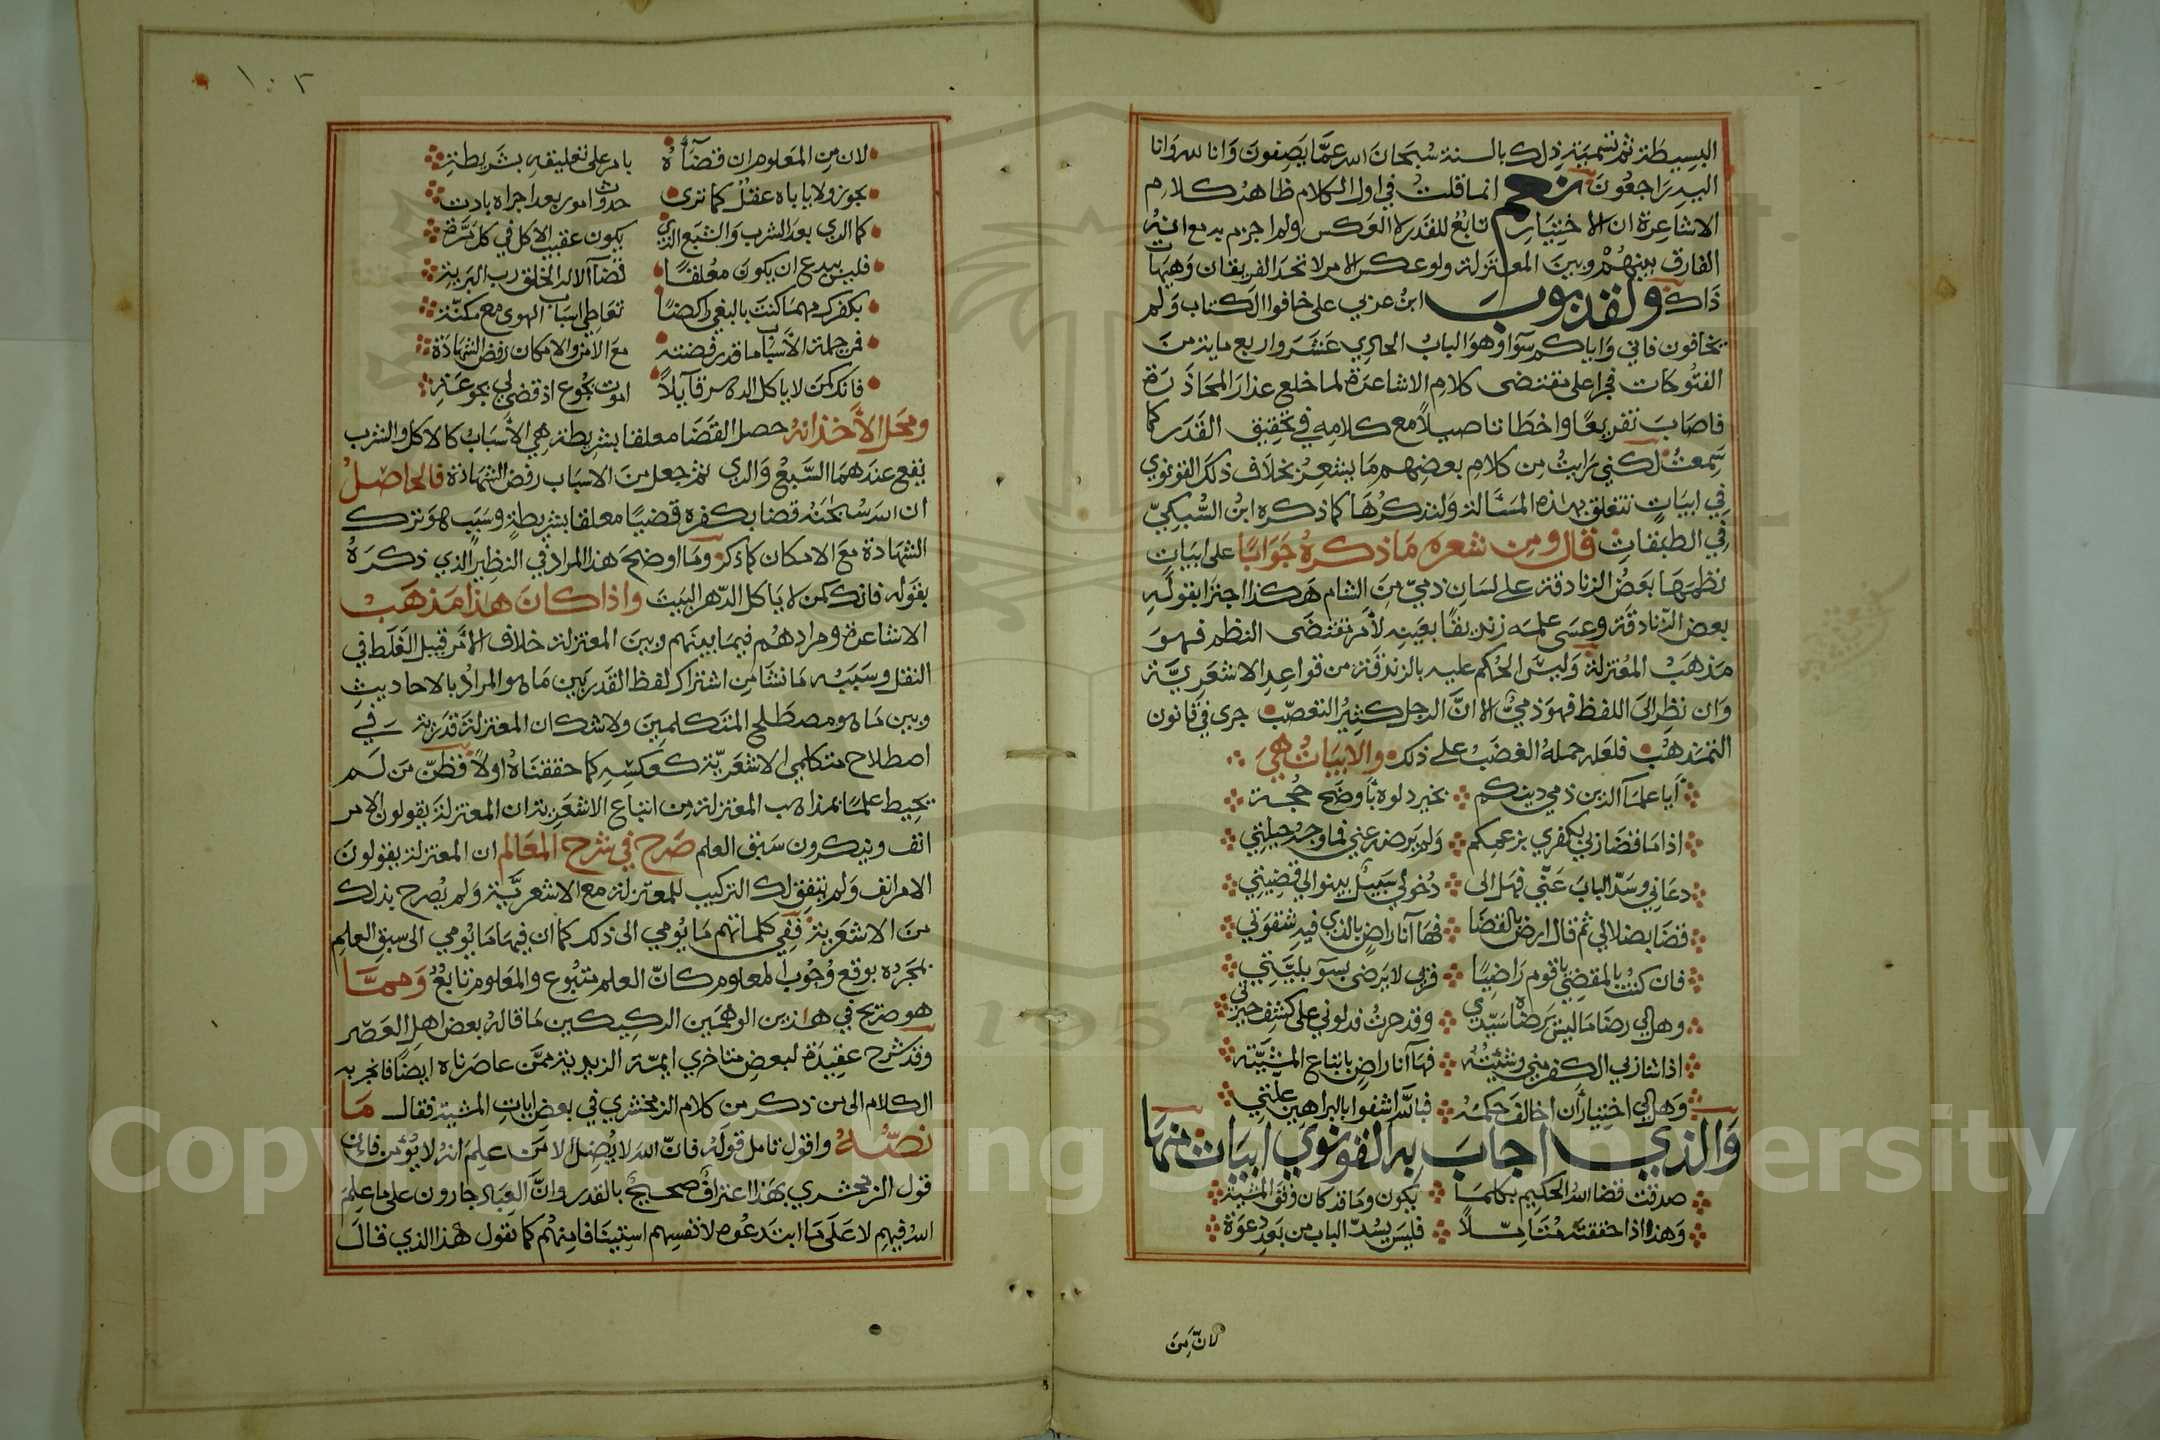 البسيطة ثم تسمية ذلك بالسنة سُبحَانَ الله عمَّا يَصِفونَ وَانا لله وَانا
اليه رَاجعُونَ نعم انما قلتُ في اول الكلام ظاهر كلام
الاشاعِرة ان الاختيار تابعُ للقدرة لا العَكس ولم اجزم به مع انه
الفارق بينهُم وبين المعتزلة ولو عكس الامر لاتحد الفريقان وَهيهَات
ذَاك ولقد بوب ابن عربي على خافوا الكتاب وَلم
يخافون فاني وَاياكم سوَآء وَهوَ البابُ الحادي عَشَر واربع ماية منَ
الفتُوحَات فجرا على مقتضى كلام الاشاعرة لما خلع عذار المحَاذَرة
فاصَابَ تفريعًا واخطا تاصيلاً مع كلامه في تحقيق القَدَر كما
سمعتُ لكني رَايتُ من كلام بعضِهم مَا يشعِرُ بخلاف ذلكَ القونوي
في ابيَاتٍ تتعلق بهذه المسَالة وَلنذكرُهَا كما ذكره ابنُ السُّبكيّ
في الطبقاتِ قال ومن شعره مَا ذكرهُ جَوَابًا على ابيَات
نظمهَا بعَضُ الزنادقة على لسَانِ ذميّ منَ الشام هَكذا اجتزَا بقولِهِ
بعض الزّنادقَة وعسَى علمه زنديقًا بعَينه لأمر تقتضَى النظم فهوَ
مَذهَبُ المعُتزلة وَليسَ الحُكم عليه بالزندقَة من قواعِدِ الاشعَريَّة
وَان نظرَ الىَ اللفظ فهوَ ذميُّ الا انَّ الرجل كثيرُ التعصّب جرى في قانون
التمَذهُب فلعَله حملهُ الغضَبُ على ذلك والابيَاتُ هيَ
أيَا علمآ الدين ذمي دينكم تحير دلوه بأوضَح حُجة
اذا مَا قضَا ربي بكفري بزعمكم وَلم يَرضه عني فما وجهُ حيلتي
دعَاني وسَدّ البابَ عَنّي فهل الى دُخولي سَبيلُ بينوا لي قضِيتي
قضَا بضلالي ثم قال ارض بالقضَا فهَا أنا راضٍ بالذي فيه شقوَتي
فان كنتُ بالمقضيّ يا قوم رَاضِيًا فربي لا يَرضى بسوءِ بليَّتي
وهل لي رضَا مَا ليسَ يَرضَاه سَيّدي وقد حرتُ دلوني على كشفِ حيرتي
اذا شا ربي الكفر مني وشئتُه فها أنا راضٍ باتباع المشيّة
وَهل لي اختيارُ أن اخالفَ حكمه فبالله اشفوا بالبراهين علتي
وَالذي اجابَ بهِ القونوي ابيَات منها
صدقت قضَا الله الحكيم بكلمَا يكون ومَا قد كان وَفق المشيّة
وَهذا اذا حققته مُتَاملاً فليسَ يسُدّ الباب من بَعدِ دعوَة
لانّ منَ
١٠٢
لان منِ المعَلوم ان قضآءَه بامر على تعليقهِ بشَريطة
يجوز ولا ياباه عقلُ كما ترى حدوث امور بعد اجراه بادت
كما الري بعد الشرب وَالشبع الذي يكون عقيبَ الاكل في كل مَرّة
فليس ببدع ان يكون معُلقًا قضآ الاله الخلق رب البَرية
بكفرك مهمَا كنتَ بالبغي راكضًا تعَاطي اسبَاب الهوى مع مكنّة
فمن جملة الأسبَاب ما قدر فضته معَ الامن والامكان رفض الشهَادَة
فانك كمنَ لا ياكل الدهر قايلاً اموت بجُوع اذ قضى لي بجوعَة
ومحل الأخذ انه حصل القضَا معلقا بشريطة هي الأسبَابُ كالاكل والشرب
يقع عندهمَا الشَّبعُ وَالري ثم جعل منَ الاسباب رفض الشهَادَة فالحاصلُ
ان الله سُبحانه قضا بكفره قضيًا معلقا بشريطةٍ وسَبب هوَ ترك
الشهَادة معَ الامكان كما ذكر ومَا اوضحَ هَذا المراد في النظير الذي ذكرَهُ
بقوَله فانك كمن لا يَاكل الدّهر البيت واذا كانَ هذا مَذهَبُ
الاشاعرة ومرادهُم فيمَا بينَهم وبين المعتزلة خلاف الامَر قبيل الغَلَط في
النقل وسَببَه مَا نشَا من اشتراك لفظ القَدر بين مَا هو المرادُ بالاحاديثِ
وبين مَا هو مصطَلح المتَكلمينَ ولا شك ان المعتزلَة قدَرية في
اصطلاح متكلمي الاشعَريّة كعكسِهِ كما حققنَاهُ اولاً فظنّ مَن لَم
يُحيط علمًا بمذاهب المعَتزلة من اتباع الاشعَرية ان المعتزلَة يقولون الامر
انف وينكرون سَبق العلم صَرح في شرح المعَالم ان المعتزلة يقولونَ
الامر انف وَلم يتفق لك التركيب للمعتزلة مع الاشعريَّة وَلم يُصرح بذلك
منَ الاشعَرية ففي كلماتهم مَا يُومي الى ذلك كما ان فيهَا مَا يُومي الى سبق العلم
بمَجرده بوقع وُجُوبَ المعلوم كانّ العلم متبُوع والمعَلوم تابعُ وَممَّا
هو صريح في هذين الوهَمَين الركيكين مَا قاله بعض اهل العَصر
وقد شرح عقِيدَة لبعضِ متاخري ايمّة الزيدية ممَّن عاصَرناه ايضًا فانجر به
الكلام الى من ذكر من كلام الزمخشري في بعضِ ايَات المشية فقال مَا
نصّهُ واقول تامل قولَهُ فانّ الله لا يُضِل الا مَن علِمَ انه لا يُؤمن فان
قول الزمخشري بهَذا اعترافُ صحيحُ بالقدر وانَّ العبَاد جارون على ما علِمَ
الله فيهِم لا عَلىَ مَا ابتدَعُوه لانفسِهم استِينافا منهُم كما نقول هَذا الذي قال